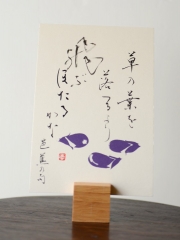 草の葉を
落るより
飛ぶ
ほたる
かな
芭蕉の句